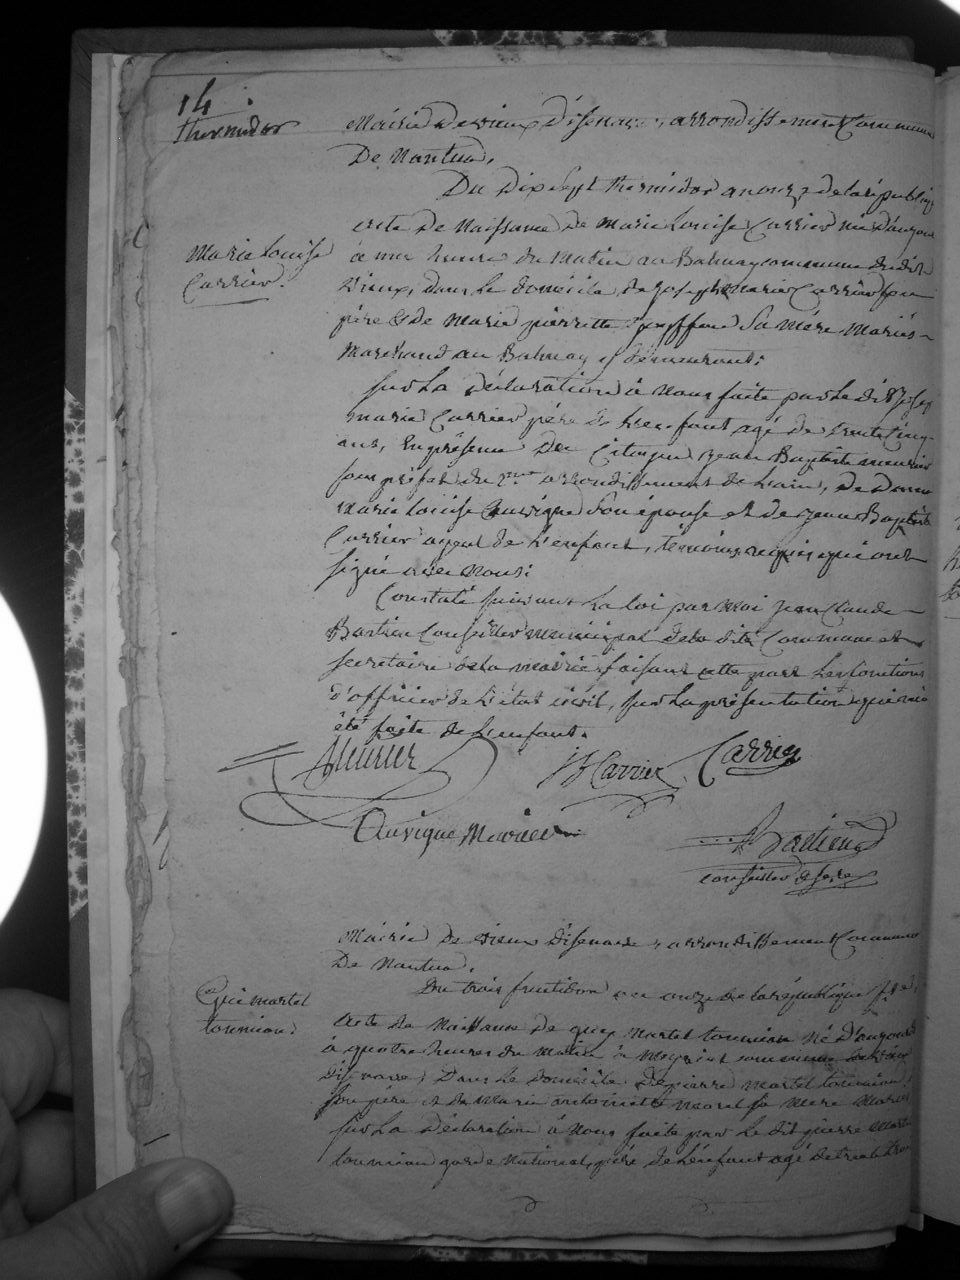 14
thermidor
Mairie de vieux d'isenave, arrondissement Communal
De Nantua.
Du Dix Sept thermidor an onze de la républiq
acte de Naissance de Marie Louise Carrier née d'aujour
Marie Louise
Carrier.
à une heure du Matin au Balmay commune du dit
Vieux, dans le domicile de Joseph marie Carrier son
père & de Marie pierrette sa Mère Mariés
Marchand au Balmay y demeurant;
sur La déclaration à Nous faite par Le dit Joseph
marie Carrier père de L'enfant agé de trente Cinq
ans, En présence Du Citoyen Jean Baptiste meunier
sous préfet du 2me arrondissement de L'ain, De Dame
marie Louise Auvigue son épouse et de Jean Baptiste
Carrier ayeul de L'enfant, témoins requis qui ont
signé avec Nous;
Constaté suivant La loi par Moi Jean Claude
Bastien Conseiller Municipal de la dite Commune et
secretaire de la mairie faisant cette part Les fonctions
d'officier de L'état civil, sur La présentation qui m'a
été faite de L'enfant.
Meunier
JB Carrier
Carrier
Auvigue Meunier
Bastien
conseiller
Mairie de vieux d'isenave, arrondissement Communal
De Nantua.
Du trois fructidor an onze de la république
Guy martel
tournion.
Acte de Naissance de guy martel tournion Né D'aujourd
à quatre heures du matin à Meyriat commune de vieux
d'isenave, Dans Le domicile de pierre martel tournion
son père et de Marie antoinette morel sa Mère Mariés
sur La Déclaration à Nous faite par Le dit pierre Martel
tournion garde National, père de L'enfant agé de trente trois